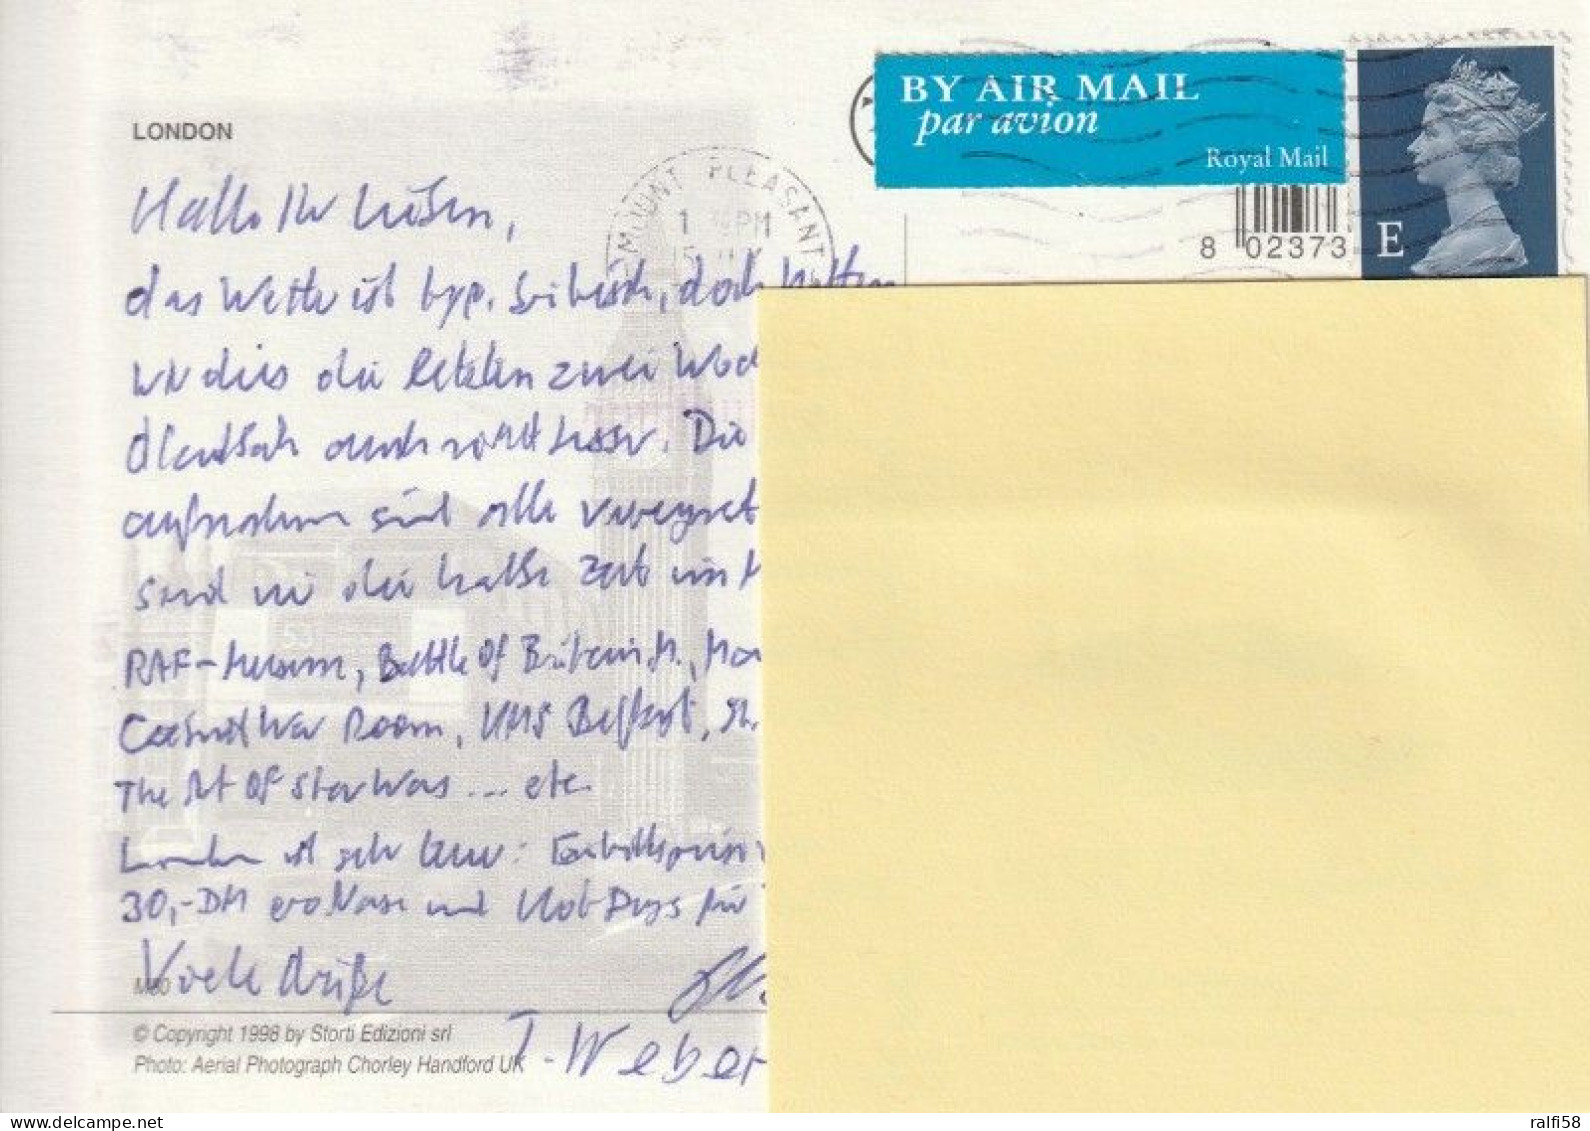 BY AIR MAIL
par avion
Royal Mail
8 02373
E
MOUNT PLEASANT
1 PM
15
LONDON
Hallo Ihr Lieben,
das Wetter ist typ. britisch, doch hatten
wir dies die letzten zwei Woc
auch nicht besser. Die
aufnahmen sind alle verregnet
sind wir die halbe Zeit im
RAF-Museum, Battle Of Britain M.,
Cabinet War Room, HMS Belfast, 
The Art Of Star Wars ... etc.
London ist sehr teuer: Eintrittspreise
30,-DM pro Nase und Hot Dogs für
Viele Grüße
M60
© Copyright 1998 by Storti Edizioni srl
Photo: Aerial Photograph Chorley Handford UK
T. Weber
ralfi58